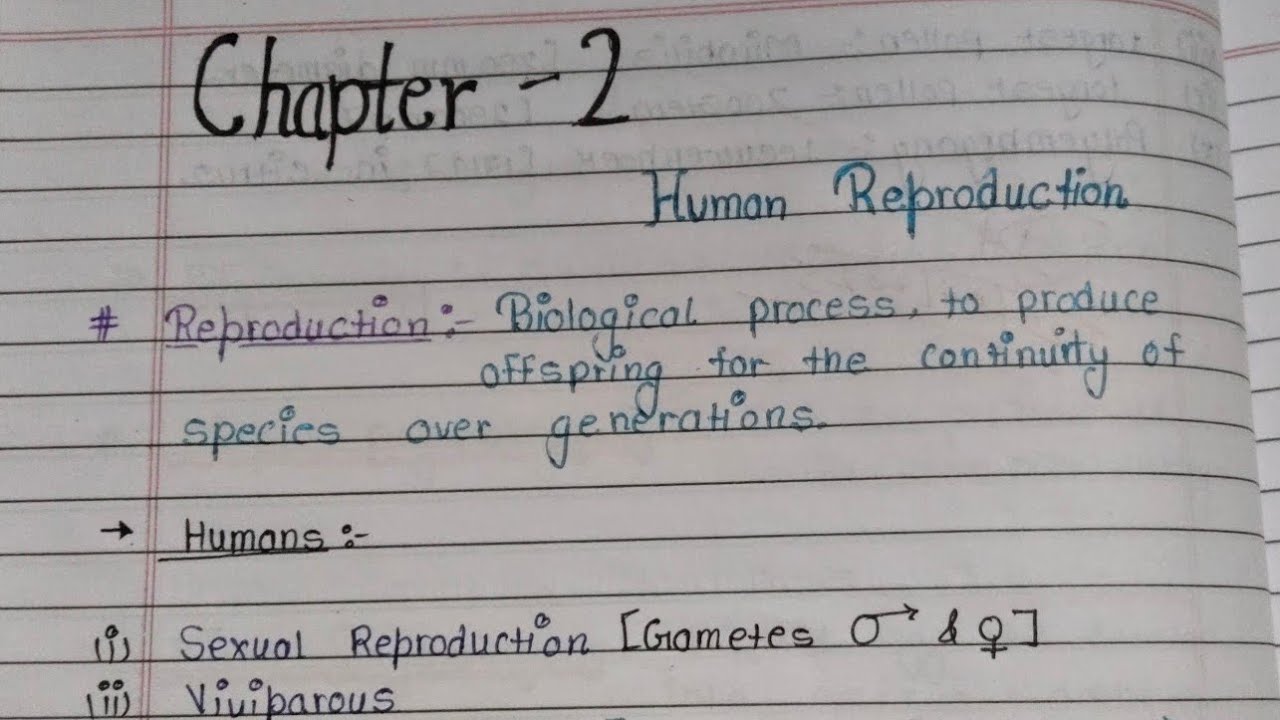 Chapter - 2
Human Reproduction
# Reproduction :- Biological process, to produce
offspring for the continuity of
species over generations.
→ Humans :-
(i) Sexual Reproduction [Gametes ♂ & ♀]
(ii) Viviparous